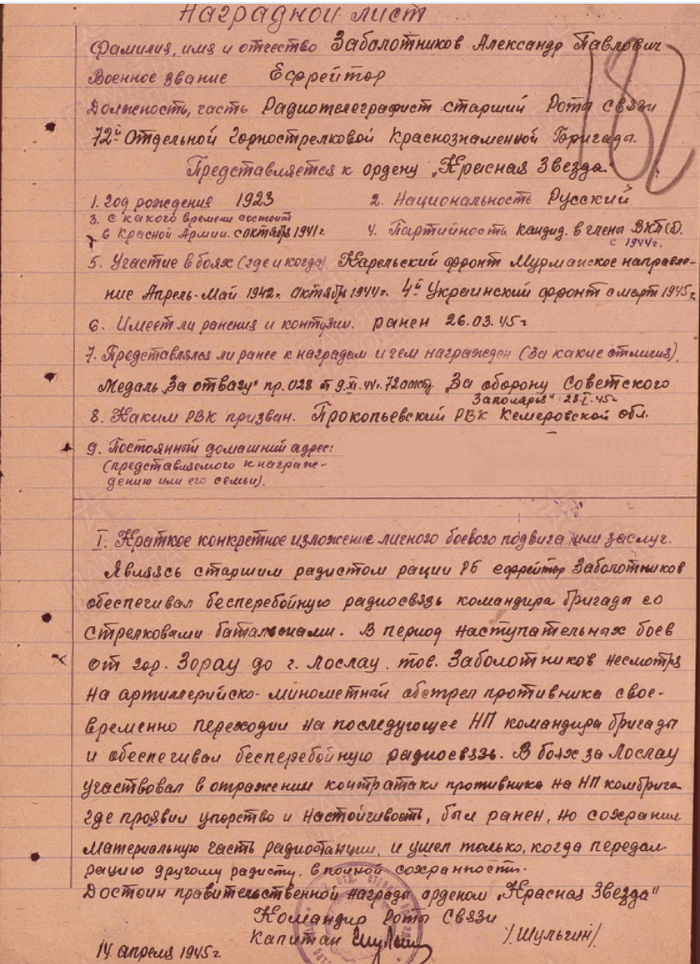 Наградной лист
182
Фамилия, имя и отчество Заболотников Александр Павлович
Военное звание Ефрейтор
Должность, часть Радиотелеграфист старший Роты связи
72й Отдельной Горнострелковой Краснознаменной Бригады.
Представляется к ордену „Красная Звезда"
1. Год рождения 1923 2. Национальность Русский
3. С какого времени состоит
в Красной Армии. с октября 1941г. 4. Партийность кандид. в члены ВКП(б).
с 1944г.
5. Участие в боях (где и когда) Карельский фронт Мурманское направле-
ние Апрель-Май 1942г. октябрь 1944г. 4й Украинский фронт с март 1945г.
6. Имеет ли ранения и контузии. ранен 26.03.45г.
7. Представлялся ли ранее к наградам и чем награжден (за какие отличия).
Медаль „За отвагу" пр. 028 от 9.XI.44г. „За оборону Советского
Заполярья"
8. Каким РВК призван. Прокопьевский РВК Кемеровской обл.
9. Постоянный домашний адрес:
(представляемого к награж-
дению или его семьи).
I. Краткое конкретное изложение личного боевого подвига или заслуг.
Являясь старшим радистом рации РБ ефрейтор Заболотников
обеспечивал бесперебойную радиосвязь командира бригады со
стрелковыми батальонами. В период наступательных боев
от гор. Зорау до г. Лослау. тов. Заболотников несмотря
на артиллерийско-минометный обстрел противника свое-
временно переходил на последующее НП командира бригады
и обеспечивал бесперебойную радиосвязь. В боях за Лослау
участвовал в отражении контратаки противника на НП комбрига
где проявил упорство и настойчивость, был ранен, но сохранил
материальную часть радиостанции, и ушел только, когда передал
рацию другому радисту, в полной сохранности.
Достоин правительственной награды орденом „Красная Звезда"
Командир Роты Связи
капитан /Шульгин/
14 апреля 1945г.